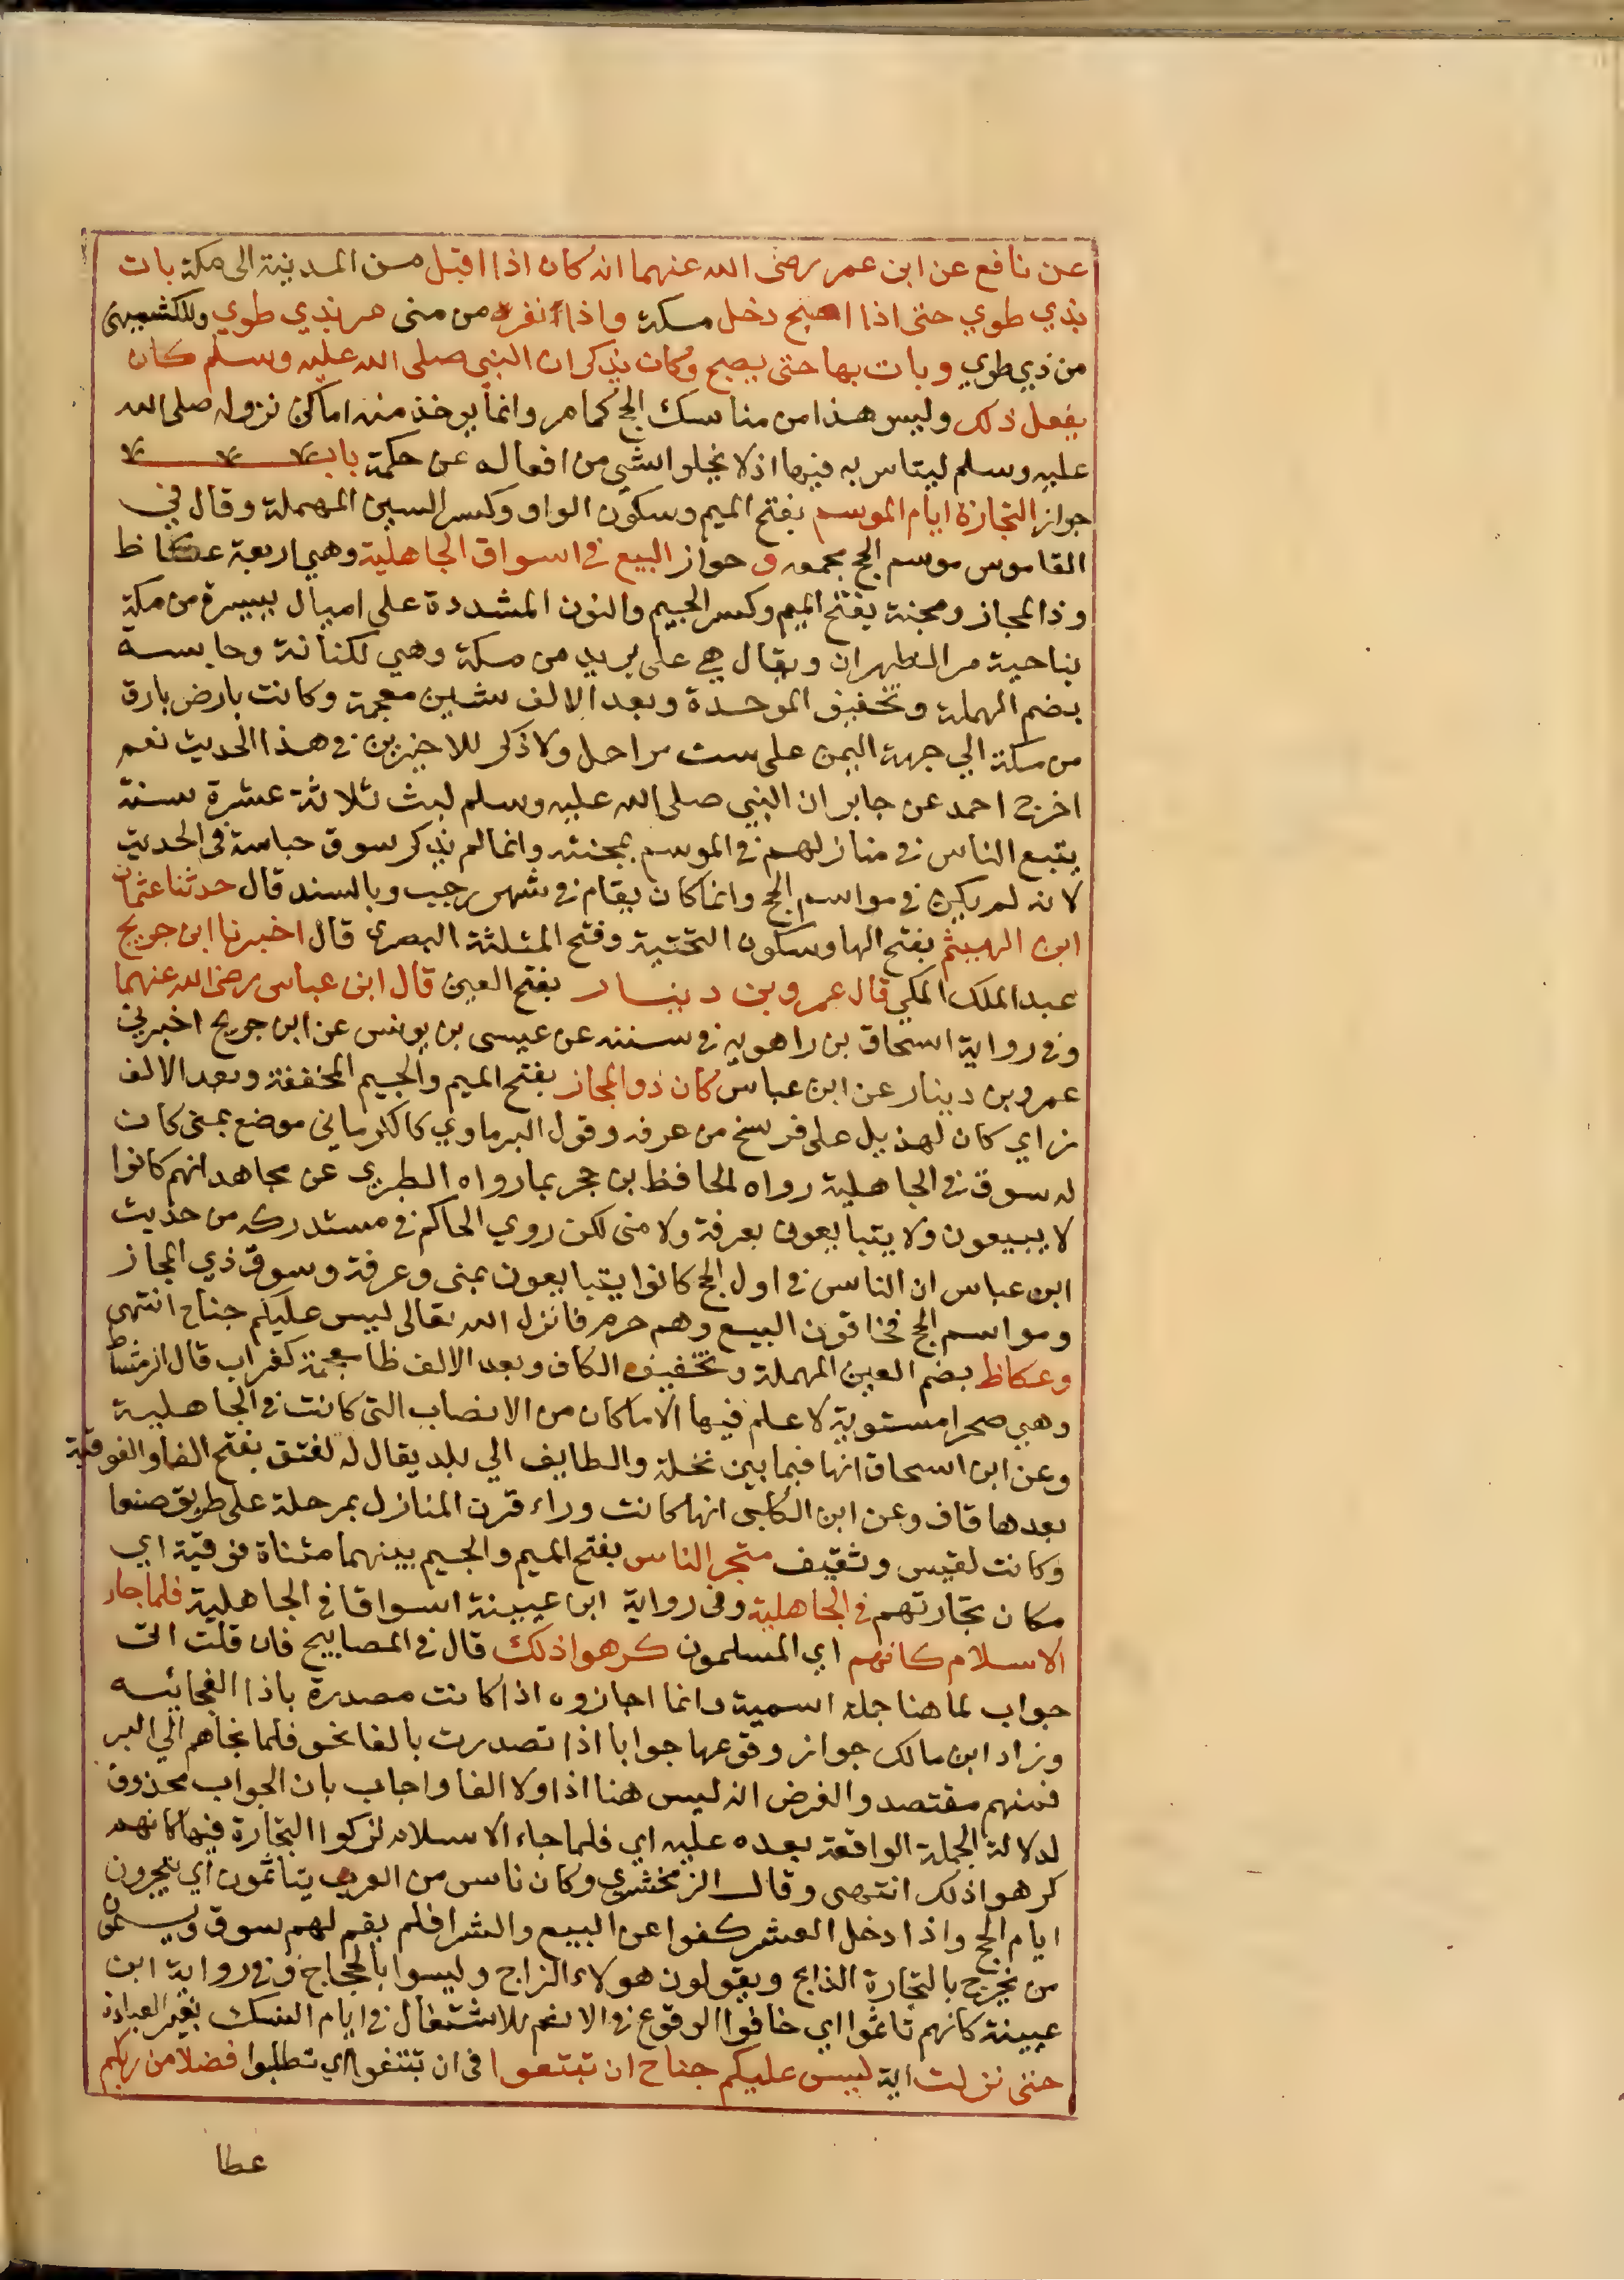 عن نافع عن ابن عمر رضى الله عنهما انه كان اذا اقبل من المدينة الى مكة بات
بذي طوي حتى اذا اصبح دخل مكة واذا نفر من منى مر بذي طوي وللكشميهنى
من ذي طوي وبات بها حتى يصبح وكان يذكر ان النبى صلى الله عليه وسلم كان
يفعل ذلك وليس هذا من مناسك الحج كما مر وانما يوخذ منه اماكن نزوله صلى الله
عليه وسلم ليتاسى به فيها اذ لا يخلوا شي من افعاله عن حكمة باب
جواز التجازة ايام الموسم بفتح الميم وسكون الواو وكسر السين المهملة وقال في
القاموس موسم الحج مجمعه و جواز البيع فى اسواق الجاهلية وهي اربعة عكاظ
وذا المجاز ومجنة بفتح الميم وكسر الجيم والنون المشددة على اميال يسيرة من مكة
بناحية مر الظهران ويقال هي على بريد من مكة وهي لكنانة وحابسة
بضم المهملة وتخفيف الموحدة وبعد الالف شين معجمة وكانت بارض بارق
من مكة الي جهة اليمن على ست مراحل ولا ذكر للاخيرين فى هذا الحديث نعم
اخرج احمد عن جابر ان النبي صلى الله عليه وسلم لبث ثلاثة عشرة سنة
يتبع الناس فى منازلهم فى الموسم بمجنته وانما لم يذكر سوق حباسة فى الحديث
لانه لم يكن فى مواسم الحج وانما كان يقام فى شهر رجب وبالسند قال حدثنا عثمان
ابن الهيثم بفتح الها وسكون التحتية وفتح المثلثة البصرى قال اخبرنا ابن جريج
عبد الملك المكي قال عمرو بن دينار بفتح العين قال ابن عباس رضى الله عنهما
وفى رواية اسحاق بن راهويه فى سننه عن عيسى بن يونس عن ابن جريج اخبرني
عمرو بن دينار عن ابن عباس كان ذو المجاز بفتح الميم والجيم المخففة وبعد الالف
زاي كان لهذيل على فرسخ من عرفه وقول البرماوي كالكرماني موضع بمنى كان
له سوق فى الجاهلية رواه الحافظ بن حجر بما رواه الطبري عن مجاهد انهم كانوا
لا يبيعون ولا يتبايعون بعرفة ولا منى لكن روي الحاكم فى مستدركه من حديث
ابن عباس ان الناس فى اول الحج كانوا يتبايعون بمنى وعرفة وسوق ذي المجاز
ومواسم الحج فخافون البيع وهم حرم فانزل الله تعالى ليس عليكم جناح انتهى
وعكاظ بضم العين المهملة وتخفيف الكاف وبعد الالف ظا معجمة كغراب قال الرشاطى
وهي صحرا مستوية لا علم فيها الا ما كان من الانصاب التى كانت فى الجاهلية
وعن ابن اسحاق انها فيما بين نخلة والطايف الي بلد يقال له لفتق بفتح الفا والفوقية
بعدها قاف وعن ابن الكلبى انها كانت وراء قرن المنازل بمرحلة على طريق صنعا
وكانت لقيس وثقيف متجر الناس بفتح الميم والجيم بينهما مثناة فوقية اي
مكان تجارتهم فى الجاهلية وفى رواية ابن عيينة اسواقا فى الجاهلية فلما جاء
الاسلام كانهم اي المسلمون كرهوا ذلك قال فى المصابيح فان قلت الت
جواب لما هنا جملة اسمية وانما اجازوه اذا كانت مصدرة باذا الفجائيه
وزاد ابن مالك جواز وقوعها جوابا اذا تصدرت بالفا نحو فلما نجاهم الي البر
فمنهم مقتصد والفرض انه ليس هنا اذا ولا الفا واجاب بان الجواب محذوف
لدلالة الجملة الواقعة بعده عليه اي فلما جاء الاسلام تركوا التجارة فيها كانهم
كرهوا ذلك انتهى وقال الزمخشري وكان ناس من العرب يتاثمون اي يتجرون
ايام الحج واذا دخل العشر كفوا عن البيع والشرا فلم يقم لهم سوق ويسمون
من يخرج بالتجارة الداج ويقولون هولاء الداج وليسوا بالحجاج وفى رواية ابن
عيينة كانهم تاثموا اي خافوا الوقوع فى الاثم للاشتغال فى ايام النسك بغير العبادة
حتى نزلت اية ليس عليكم جناح ان تبتغوا فى ان تبتغوا اي تطلبوا فضلا من ربكم
عطا